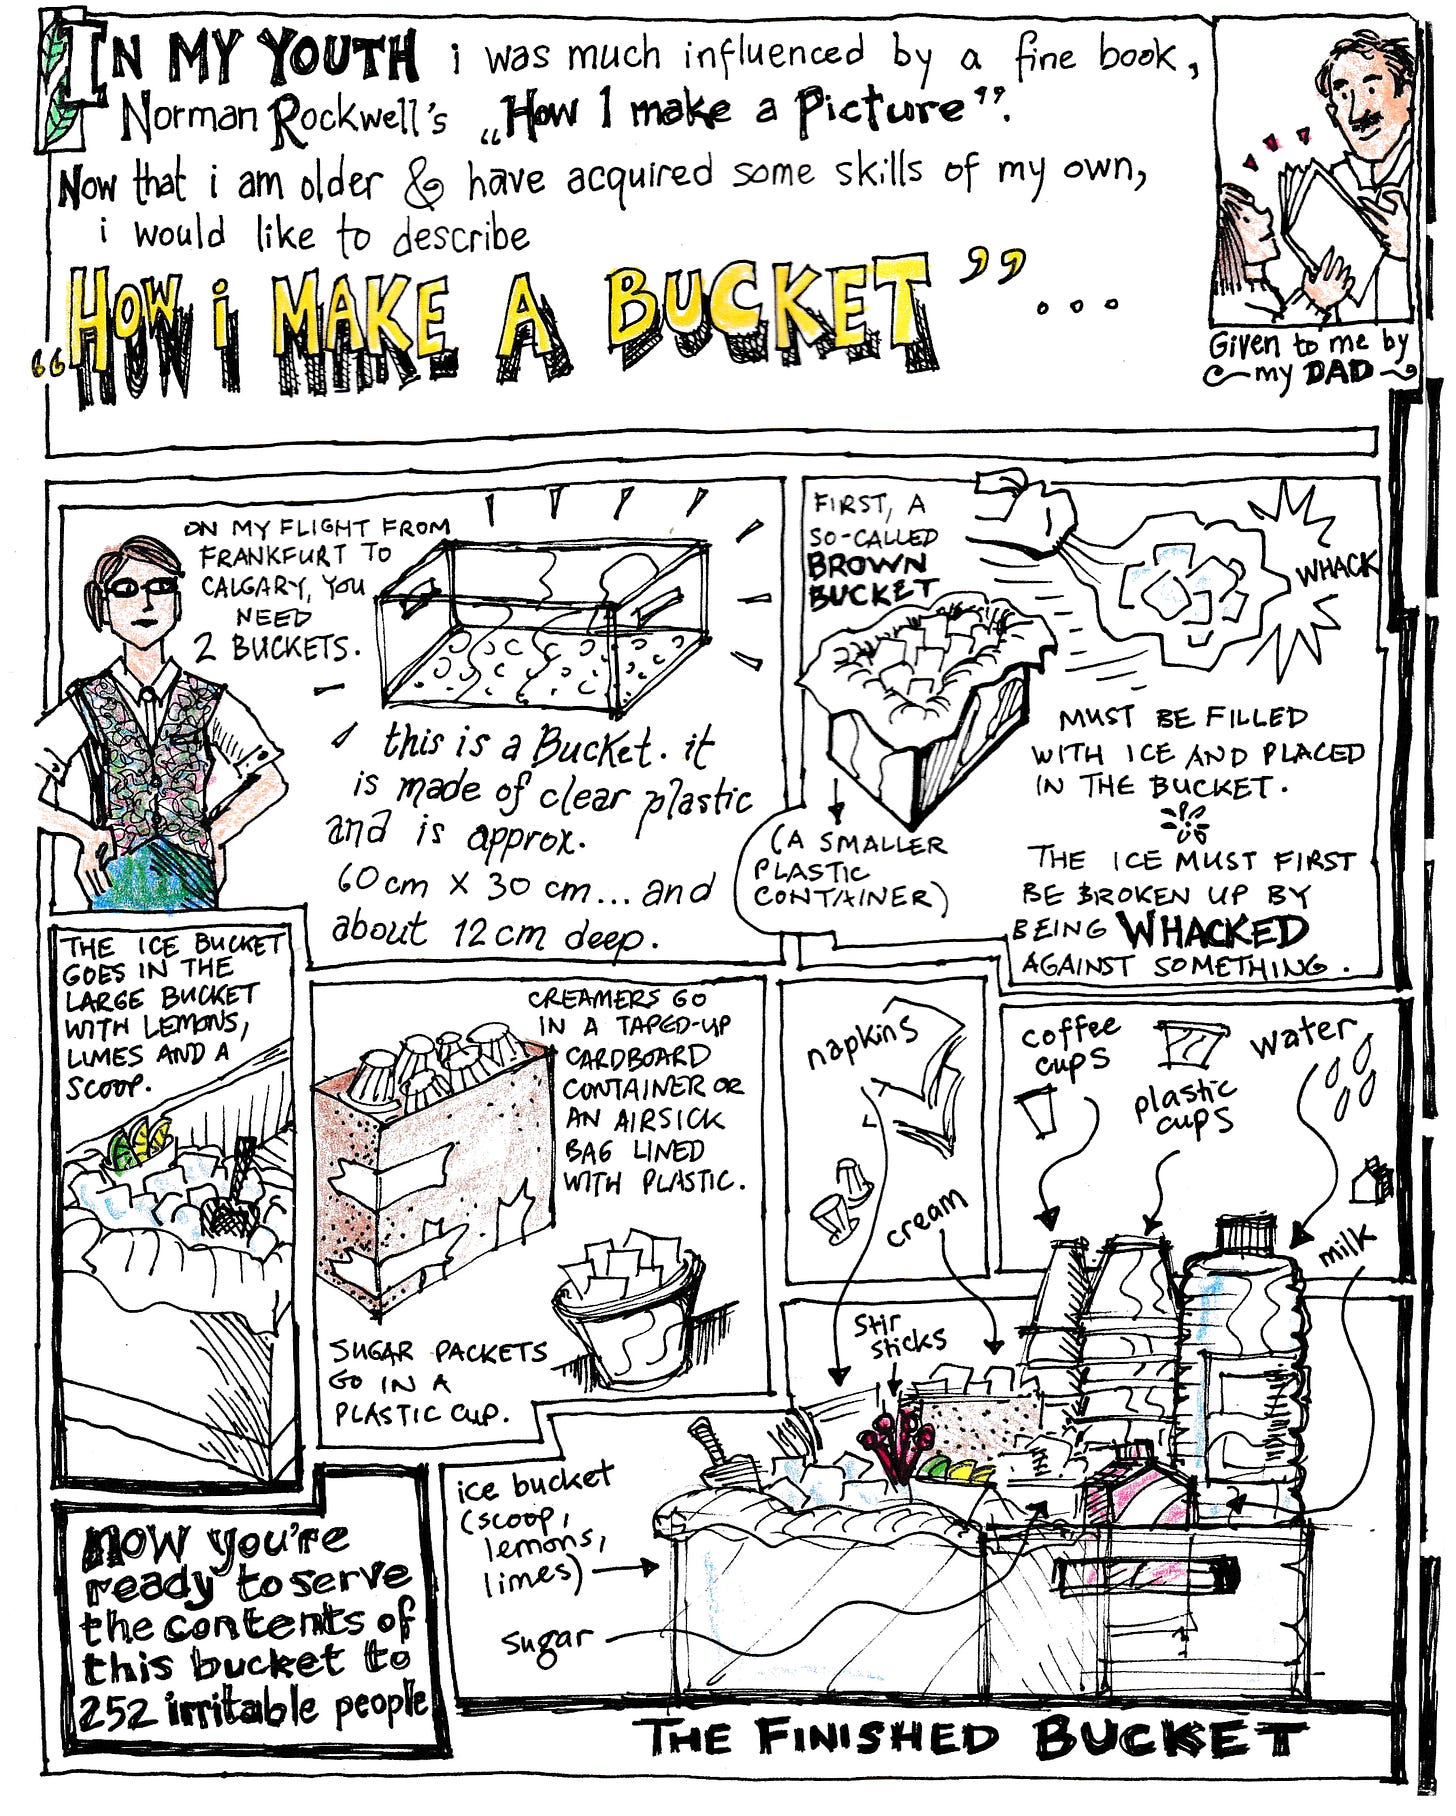 IN MY YOUTH i was much influenced by a fine book,
Norman Rockwell's „How I make a Picture”.
Now that i am older & have acquired some skills of my own,
i would like to describe
“HOW i MAKE A BUCKET”...
Given to me by
my DAD
ON MY FLIGHT FROM
FRANKFURT TO
CALGARY, YOU
NEED
2 BUCKETS.
this is a Bucket. it
is made of clear plastic
and is approx.
60cm X 30cm...and
about 12cm deep.
FIRST, A
SO-CALLED
BROWN
BUCKET
(A SMALLER
PLASTIC
CONTAINER)
WHACK
MUST BE FILLED
WITH ICE AND PLACED
IN THE BUCKET.
THE ICE MUST FIRST
BE BROKEN UP BY
BEING WHACKED
AGAINST SOMETHING.
THE ICE BUCKET
GOES IN THE
LARGE BUCKET
WITH LEMONS,
LIMES AND A
SCOOP.
CREAMERS GO
IN A TAPED-UP
CARDBOARD
CONTAINER OR
AN AIRSICK
BAG LINED
WITH PLASTIC.
SUGAR PACKETS
GO IN A
PLASTIC CUP.
napkins
cream
coffee
cups
plastic
cups
water
milk
stir
sticks
ice bucket
(scoop,
lemons,
limes)
sugar
NOW you're
ready to serve
the contents of
this bucket to
252 irritable people
THE FINISHED BUCKET